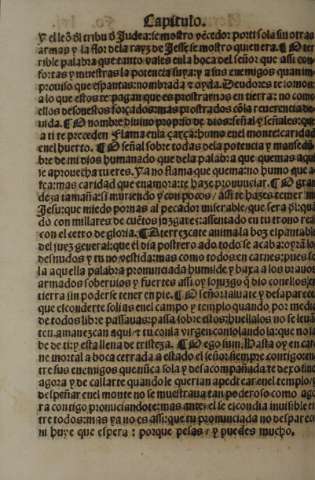 Capitulo.
y el leõ ðl tribu ð Judea: se mostro vẽcedor: por ti sola sin otras
armas y la flor dla rayz de Jesse se mostro quien era. ¶ O ter
rible palabra que tanto vales en la boca del señor: que assi con
fortas y muestras la potencia suya: y a sus enemigos quan im
prouiso que espantas: nombrada z oyda. Deudores te somos
a lo que estos te pagan que es prostrarnos en tierra: no como
ellos desonestos forçados: mas postrados cõ la reuerencia de
uida. ¶ O nombre diuino proprio de dios: señal y señales: que
a ti te preceden Flama en la çarça: humo en el monte: caridad
en el huerto. ¶ O señal sobre todas de la potencia y mansedũ
bre de mi dios humanado que de la palabra que quemas aqui
te aprouecha tu eres. Ya no flama que quema: no humo que a
mas caridad que enamora: te haze pronunciar. ¶ O gran
deza tamaña: si muriendo y con pocos, assi te hazes temer
Jesu: que miedo pornas al pecador miserable: que sera ðl: quã
do con millares de cuẽtos jozgares: assentado en tu trono real
con el cetro de gloria. ¶ O terrezcate anima la boz espantable
del juez general: que el dia postrero ado todo se acaba: oyrã los
desnudos y tu no vestida: mas como todos en carnes: pues so
la aquella palabra pronunciada humilde y baxa a los brauos
armados soberuios y fuertes assi oy lo juzgo q̃ dio con ellos en
tierra sin poder se tener en pie. ¶ O señor saluate y desaparece
que el conderte solias en el campo y templo quando por medio
de todos libre passauas: passa sobre ellos: huella los no se leuã
ten: amanezcan aqui y tu consuela virgen consolando la: que no sa
be de ti: y esta llena de tristeza. ¶ O ego sum. Hasta oy en car
ne mortal a boca cerrada a estado el señor: siempre contigo en
tre sus enemigos que nũca sola y desacompañada te dexo sino
agora y de callarte quando le querian apedrear en el templo: y
despeñar en el monte no se mostraua tan poderoso como ago
ra contigo pronunciandote: mas ante el se escondia inuisible en
tre todos: mas ya no es assi: que tu pronunciada no desparece
ni huye que espera: porque pesas: y puedes mucho.